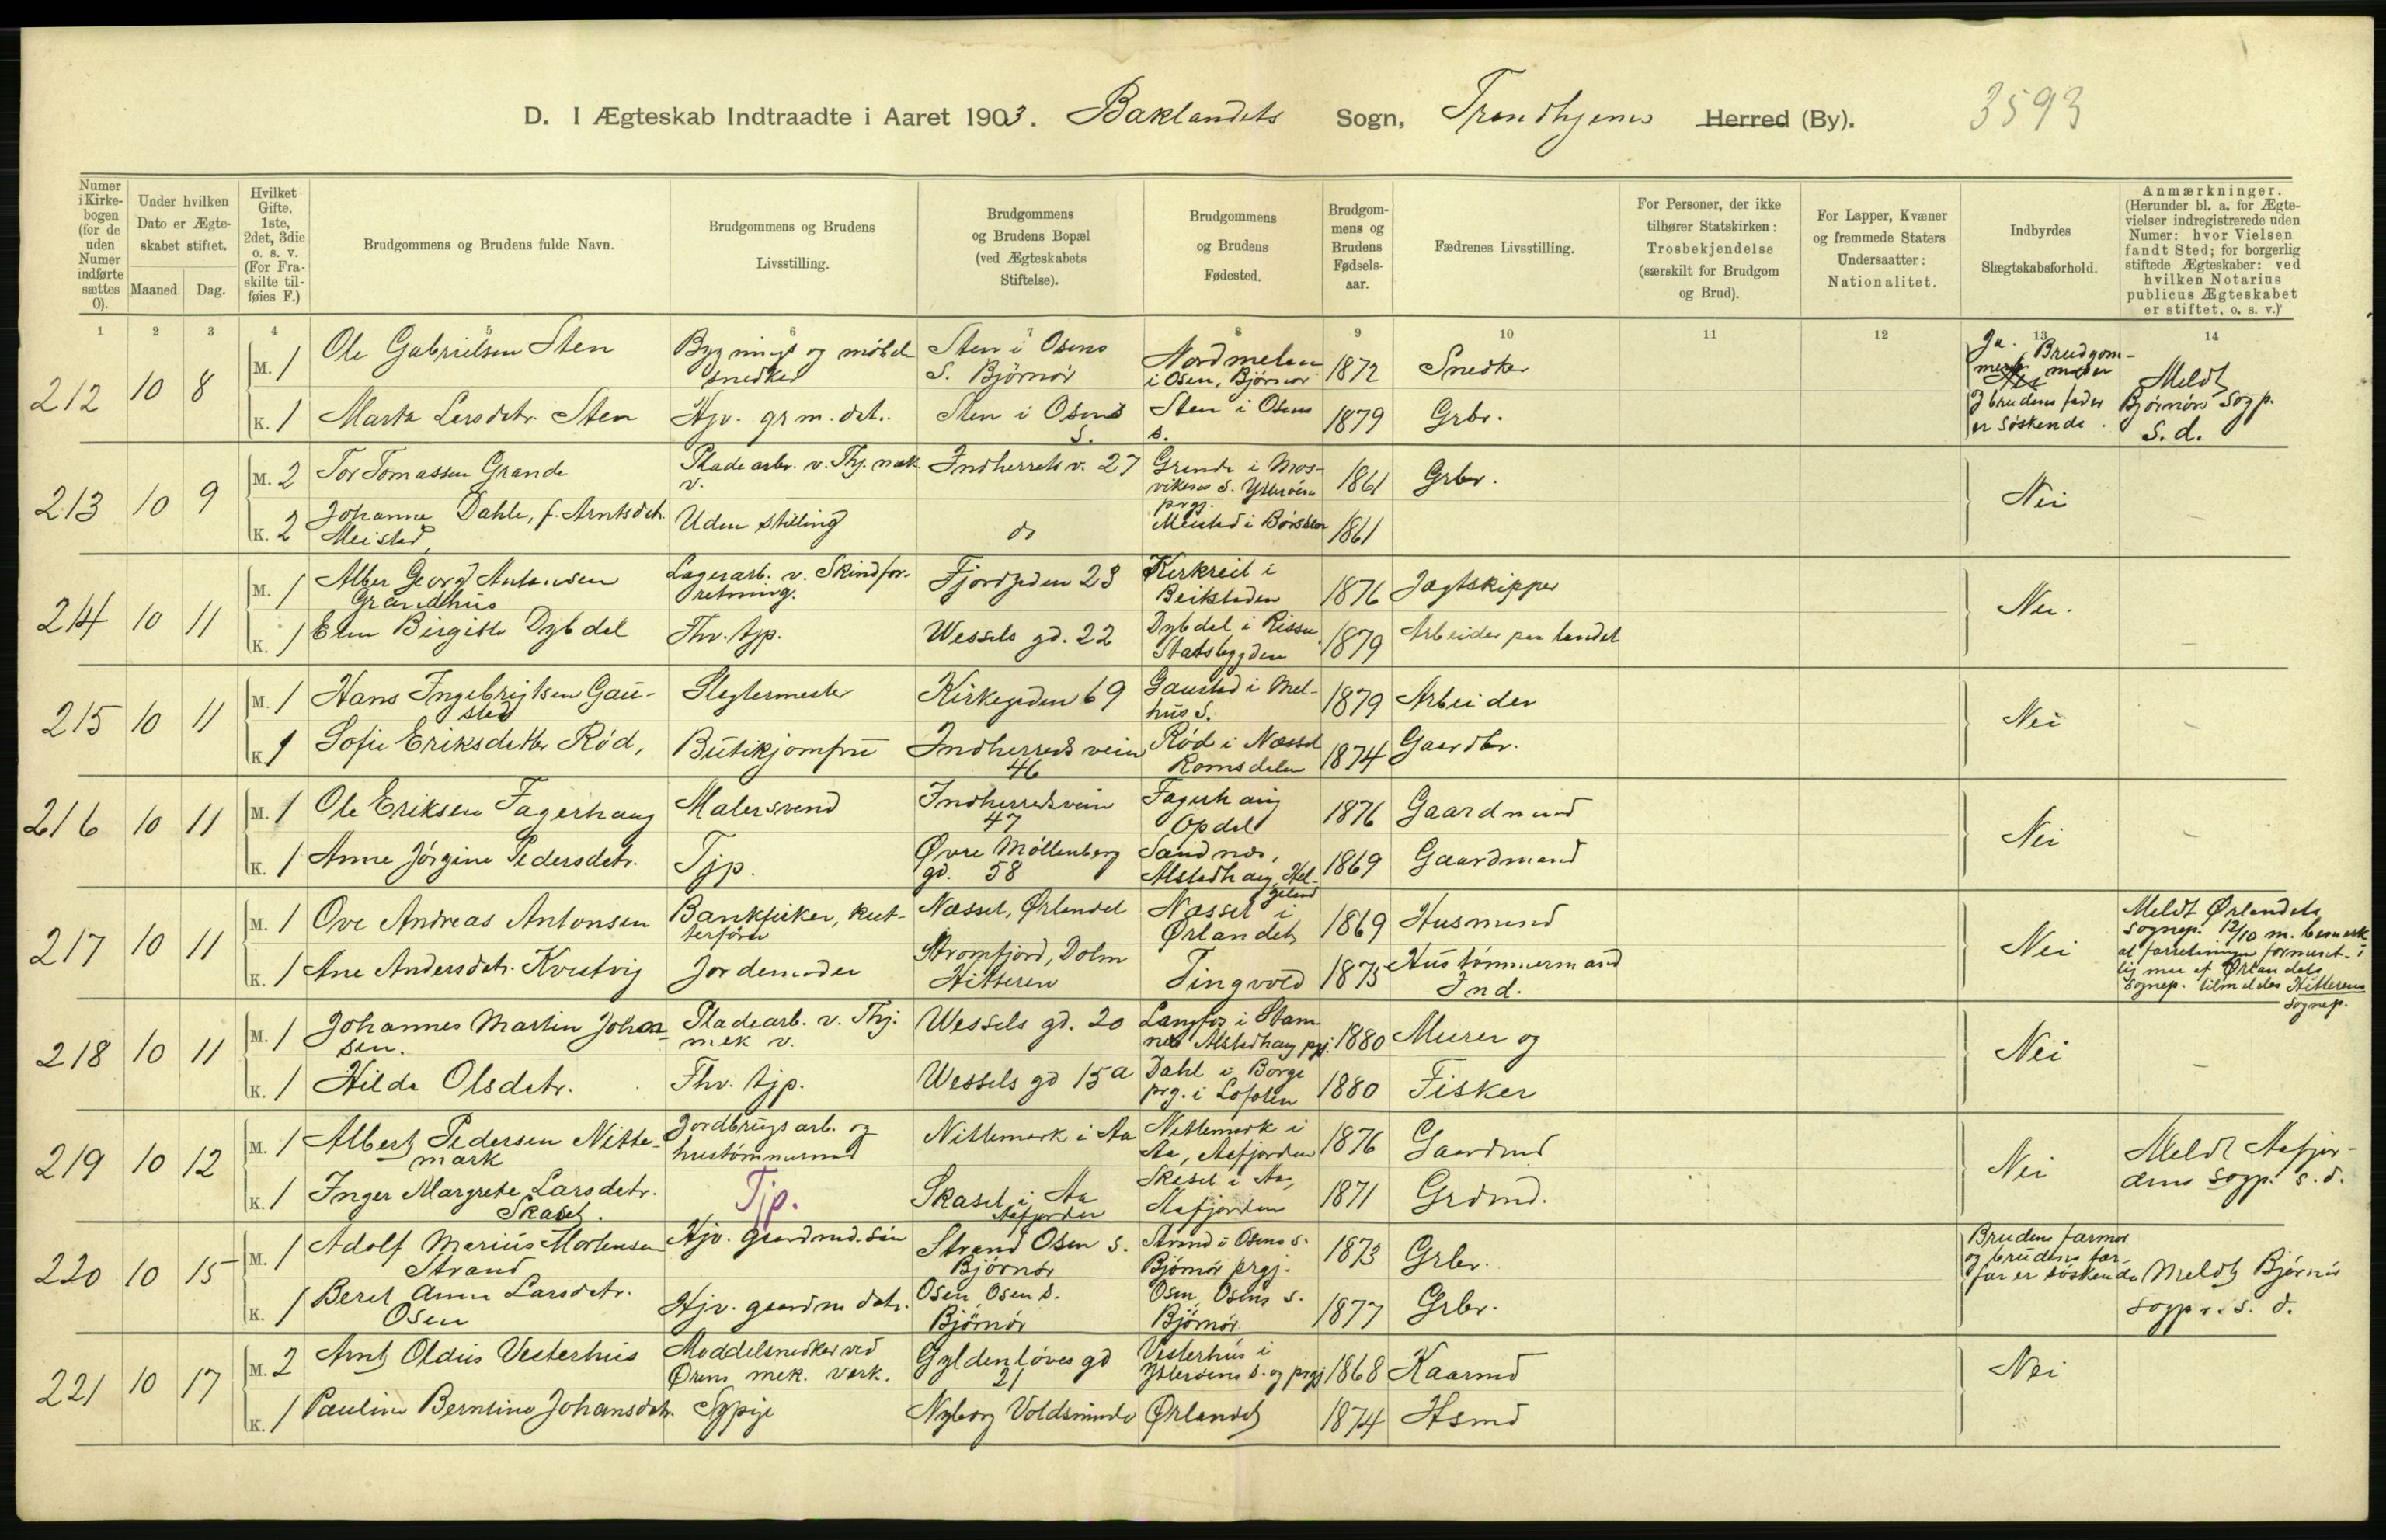 D. I Ægteskab Indtraadte i Aaret 1903. Baklandets Sogn, Trondhjems Herred (By). 3593
Numer i Kirkebogen (for de uden Numer indførte sættes 0).
Under hvilken Dato er Ægteskabet stiftet.
Maaned. Dag.
Hvilket Gifte. 1ste, 2det, 3die o. s. v. (For Fraskilte tilføies F.)
Brudgommens og Brudens fulde Navn.
Brudgommens og Brudens Livsstilling.
Brudgommens og Brudens Bopæl (ved Ægteskabets Stiftelse).
Brudgommens og Brudens Fødested.
Brudgommens og Brudens Fødselsaar.
Fædrenes Livsstilling.
For Personer, der ikke tilhører Statskirken: Trosbekjendelse (særskilt for Brudgom og Brud).
For Lapper, Kvæner og fremmede Staters Undersaatter: Nationalitet.
Indbyrdes Slægtskabsforhold.
Anmærkninger. (Herunder bl. a. for Ægtevielser indregistrerede uden Numer: hvor Vielsen fandt Sted; for borgerlig stiftede Ægteskaber: ved hvilken Notarius publicus Ægteskabet er stiftet, o. s. v.)
1 2 3 4 5 6 7 8 9 10 11 12 13 14
212 10 8
M. 1 Ole Gabrielsen Sten Bygnings og möbelsnedker Sten i Osens S. Björnör Nordmelan i Osen, Björnör 1872 Snedker
K. 1 Marta Larsdatr. Sten Hjv. grm. datr. Sten i Osens S. Sten i Osens s. 1879 Grbr.
Ja. Brudgommens moder
g brudens fader er söskende.
Meldt Björnörs Sogp. s. d.
213 10 9
M. 2 Tor Tomassen Grande Pladearbr. v. Thj. mek. v. Indherreds v. 27 Grande i Mosvikens S. Ytterøens prgj. 1861 Grbr.
K. 2 Johanna Dahle, f. Arntsdatr. Meistad, Uden stilling do Meistad i Børsen 1861
Nei
214 10 11
M. 1 Georg Antonsen Grandhus Lagerarb. v. Skindforretning. Fjordgden 23 i Beitstaden 1876 Jagtskipper
K. 1 Birgitte Dybdal Fhv. tjp. Wessels gd. 22 Dybdal i Rissa Statsbygden 1879 Arbeider paa landet
Nei.
215 10 11
M. 1 Hans Ingebrigtsen Gaustad Slagtermester Kirkegaden 69 Gaustad i Melhus S. 1879 Arbeider
K. 1 Sofie Eriksdatter Röd, Butikjomfru Indherreds veien 46 Röd i Næsset Romsdalen 1874 Gaardbr.
Nei
216 10 11
M. 1 Ole Eriksen Fagerhaug Malersvend Indherredsveien 47 Fagerhaug Opdal 1876 Gaardmand
K. 1 Anne Jörgine Pedersdatr. Tjp. Øvre Möllenberg gd. 58 Sandnes, Alstadhaug, Helgeland 1869 Gaardmand
Nei
217 10 11
M. 1 Ove Andreas Antonsen Bankfisker, kutterförer Næsset, Ørlandet Næsset i Ørlandet 1869 Husmand
K. 1 Ane Andersdatr. Kvistvig Jordemoder Stromfjord, Dolm Hitteren Tingvold 1875 Hustömmermand Ind.
Nei
Meldt Ørlandets Sognep. 12/10 m. bemærk. at forretningen
af Ørlandets Sognep. tilmeldes Hitterens Sognep.
218 10 11
M. 1 Johannes Martin Johansen. Pladearb. v. Thj. mek v. Wessels gd. 20 i Stamnes Alstadhaug pgj. 1880 Murer og
K. 1 Hilda Olsdatr. Fhv. tjp. Wessels gd 15a Dahl i Borge prg. i Lofoten 1880 Fisker
Nei
219 10 12
M. 1 Albert Pedersen Nittemark Jordbrugsarb. og hustömmermand Nittemark i Aa Nittemark i Aa, Aafjorden 1876 Gaardmd
K. 1 Inger Margrete Larsdatr. Skaset. Tjp. Skaset i Aa Aafjorden Skaset i Aa, Aafjorden 1871 Grdmd.
Nei
Meldt Aafjordens sogp. s. d.
220 10 15
M. 1 Adolf Marius Mortensen Strand Hjv. gaardmd. sön Strand Osen S. Björnör Strand i Osens s. Björnör prgj. 1873 Grbr.
K. 1 Beret Anna Larsdatr. Osen Hjv. gaardm datr. Osen Osen s. Björnör Osen Osens s. Björnör 1877 Grbr.
Brudens farmor og brudens farfar er söskende
Meldt Björnör sogpr. s. d.
221 10 17
M. 2 Arnt Oldus Vesterhus Moddelsnedker ved Ørens mek. verk. Gyldenlöves gd 21 Vesterhus i Ytterøens s. og prgj 1868 Kaarmd
K. 1 Pauline Berntine Johansdatr. Sypige Nyborg Voldsminde Ørlandet 1874 Hsmd
Nei